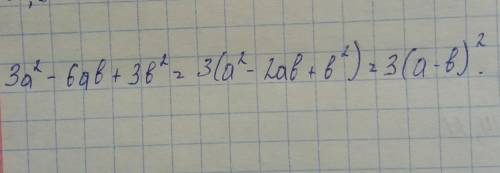 3a² - 6ab + 3b² = 3(a² - 2ab + b²) = 3(a - b)².